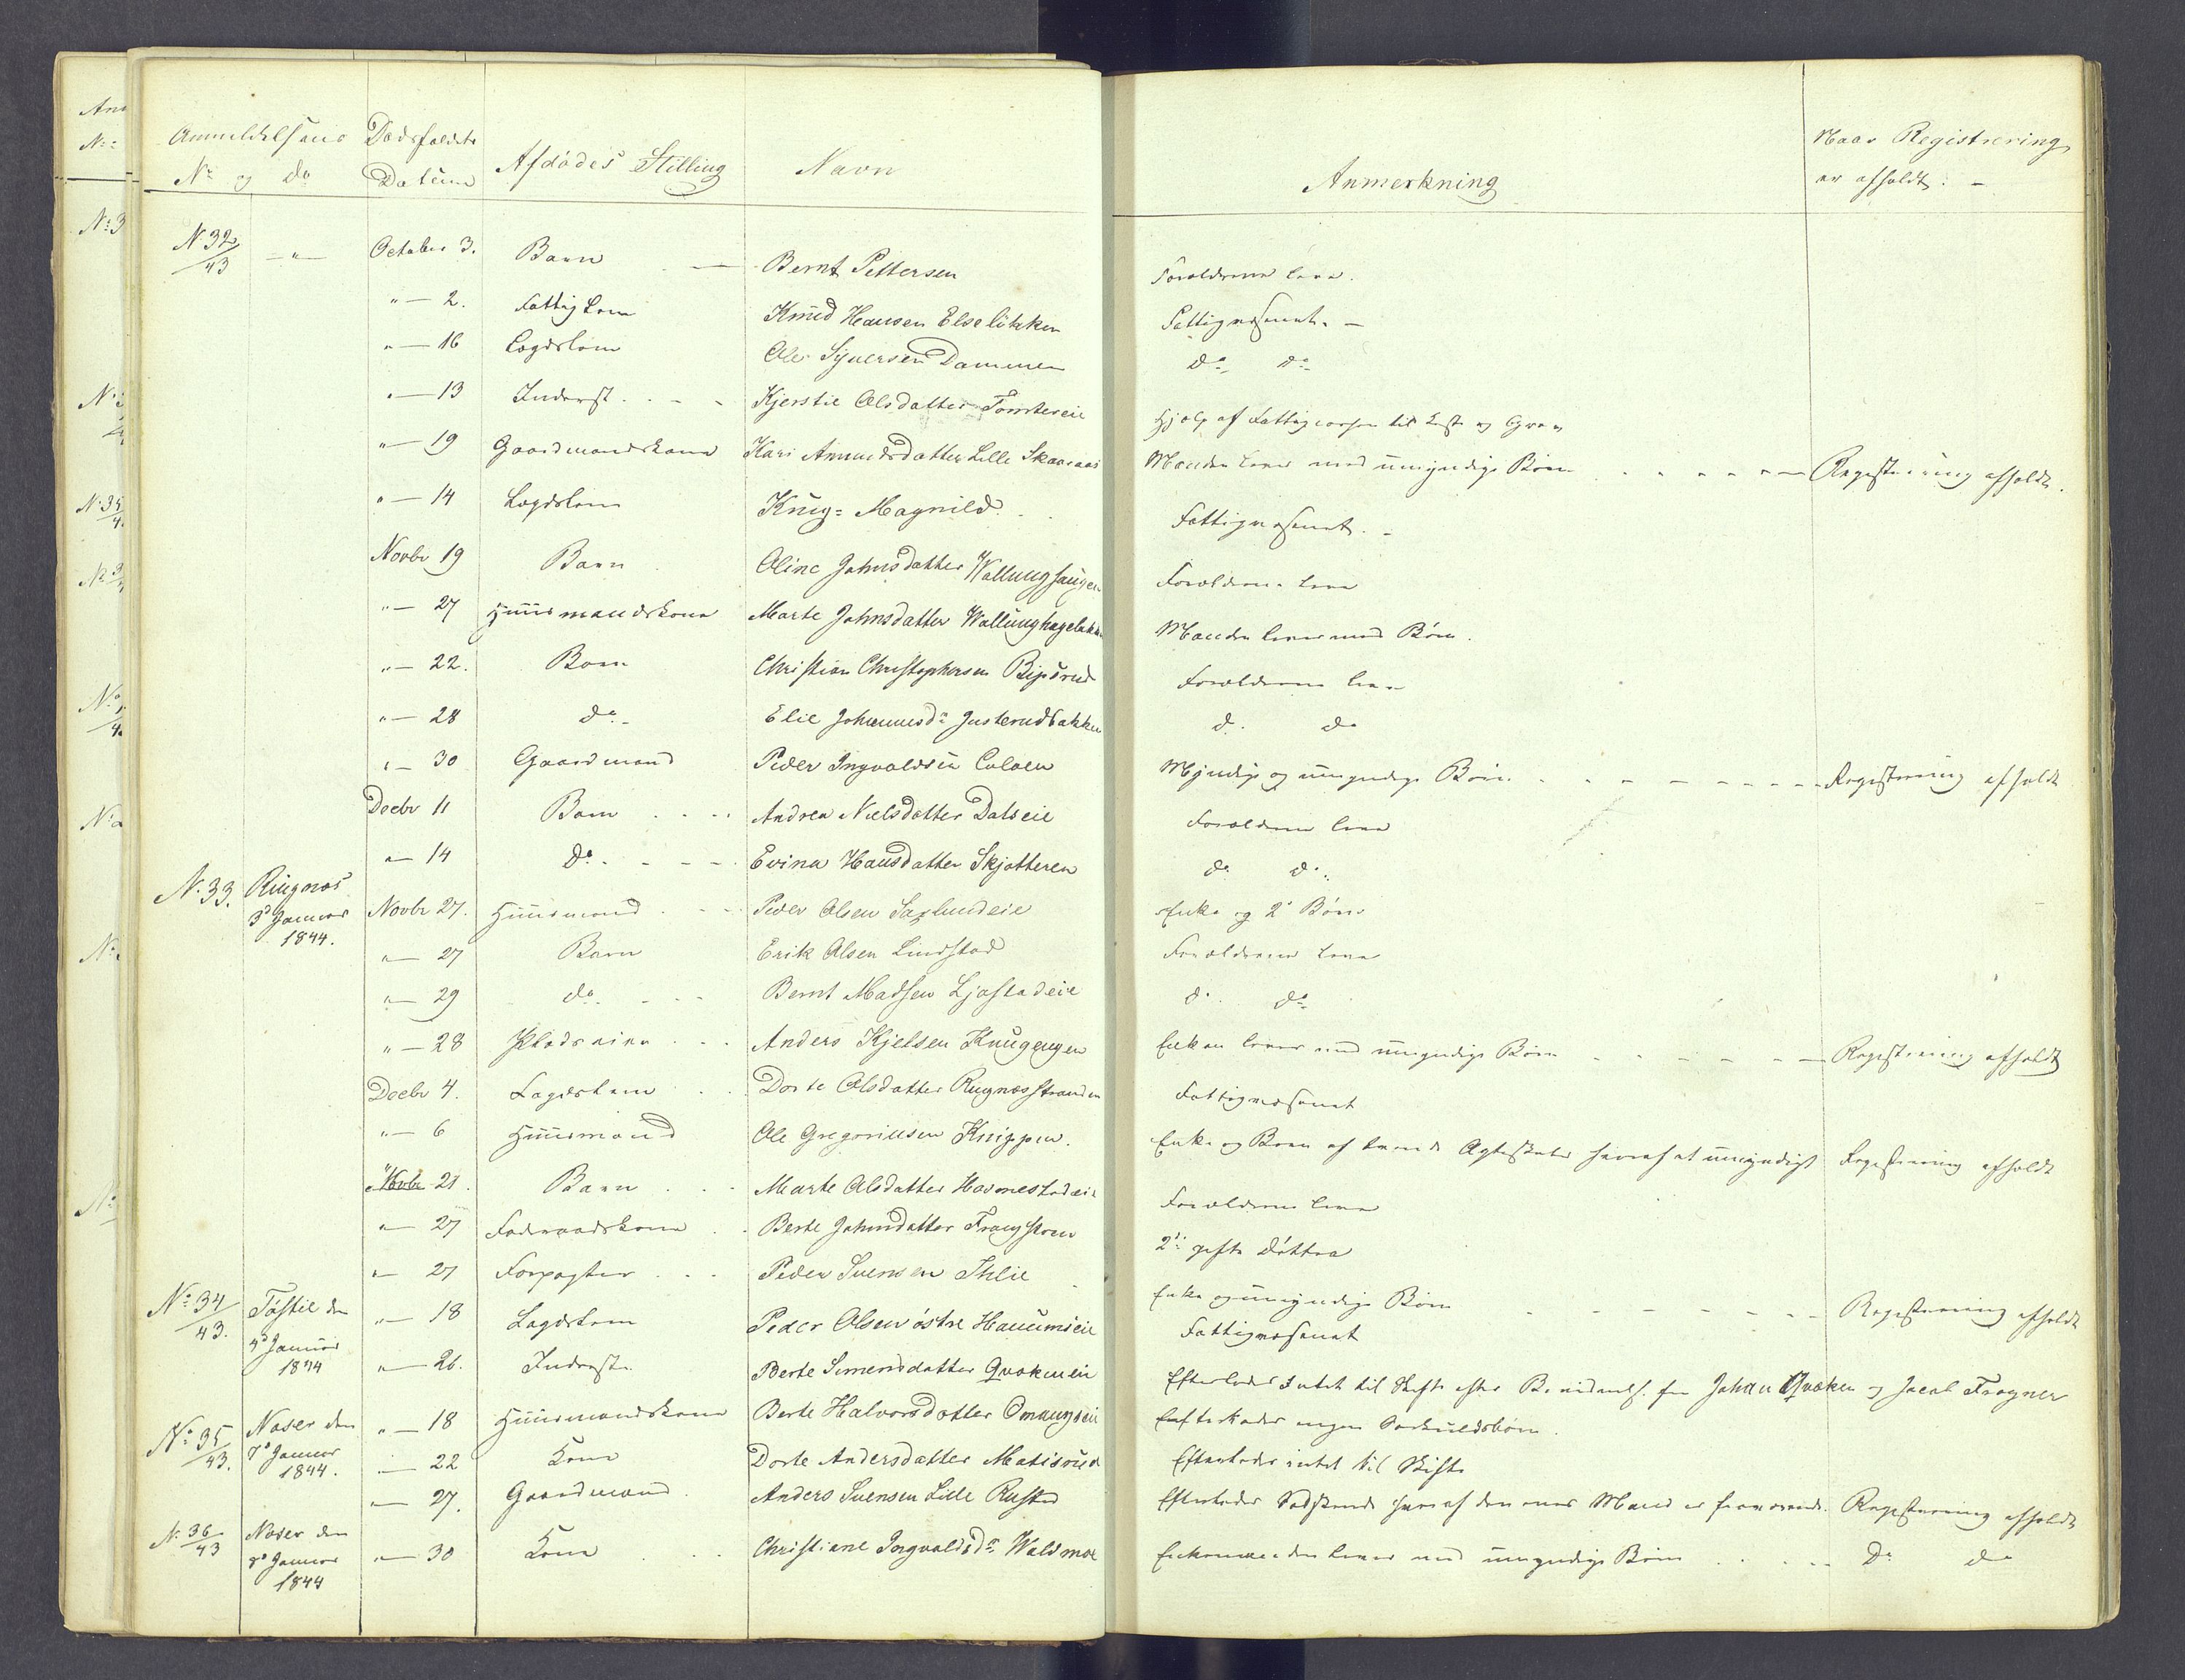 Anmeldelsens Dødsfaldets
No og do Datum Afdødes Stilling Navn Anmerkning Naar Registrering
er afholdt. -
N 32/43 - " - October 3. Barn - Bernt Pettersen Forældrene leve.
" - 2. Fattiglem Knud Hansen Elseløkken Fattigvæsenet. -
" - 16 Lægdslem Ole Syversen Dammen do do
" - 13 Inderst . - - Kjerstie Olsdatter Tomtereie Hjelp af Fattigcassen til Kiste og Grav
" - 19 Gaardmandskone Kari Amundsdatter Lille Skaaraas Manden lever med umyndige Børn - - - - Registrering afholdt.
" - 14 Lægdslem Krüg= Magnild. Fattigvæsenet. -
Novbr 19 Barn Oline Johnsdatter Wallunghaugen Forældrene leve
" - 27 Huusmandskone Marte Johnsdatter Wallunghageløkken Manden lever med Børn.
" - 22. Barn Christian Christophersen Bipsrud Forældrene leve
" - 28 do - Elie Johannesdr Justerudbakken do do
" - 30 Gaardmand Peder Ingvoldsen Myndige og umyndige Børn - - - - - - Registrering afholdt
Decbr 11 Barn . . . Andrea Nielsdatter Dalseie Forældrene leve
" - 14 do. - - - Evina Hansdatter Skjotteren do do.
N. 33. Ringnæs 3d Januar 1844. Novbr 27. Huusmand . - - Peder Olsen Saxlundeie Enke og 2 Børn
" - 27 Barn Erik Olsen Lindstad Forældrene leve
" - 29 do. - - - Bernt Madsen Ljøstadeie do. do
" - 28 Pladseier . . . Anders Kjelsen Krügengen Enken lever med umyndige Børn - - - - - - Registrering afholdt
Decbr 4. Lægdslem . . . Dorte Olsdatter Rugnæsstranden Fattigvæsenet
" - 6 Huusmand Ole Gregoriusen Knippen. Enke og Børn af Ægteskaber hvoraf et umyndigt Registrering afholdt
" Novbr 21. Barn . . . Marte Olsdatter Hornestadeie Forældrene leve
" - 27 Føderaadskone . . Berte Johnsdatter 2de gifte Døttre
" - 27 Forpagter . . . Peder Svensen Ihlie Enke og umyndige Børn - - - - - - - Registrering afholdt
No 34/43. Tøstie den 4d Januar 1844 " - 18 Lægdslem Peder Olsen østre Haneumseie Fattigvæsenet
" - 26. Inderst. Berte Simensdatter Qvækneeie Efterlader Intet til Skifte efter Bevidnelse fra Johan Qvæken og Jacob Frogner
No 35/43. Noser den 7d Januar 1844. " - 18 Huusmandskone Berte Halvorsdatter Omangseie Efterlader ingen
" - 22 Kone Dorte Andersdatter Matisrud Efterlader intet til Skifte
" - 27. Gaardmand. Anders Svensen Lille Rustad Efterlader Sødskende hvoraf den ene Mand er fraværende. Registrering afholdt
N. 36/43 Noser den 8d Januar 1844 " - 30 Kone . . . Christiane Ingvaldsdr Waldmoe Enkemanden lever med umyndige Børn . . . - - Do do